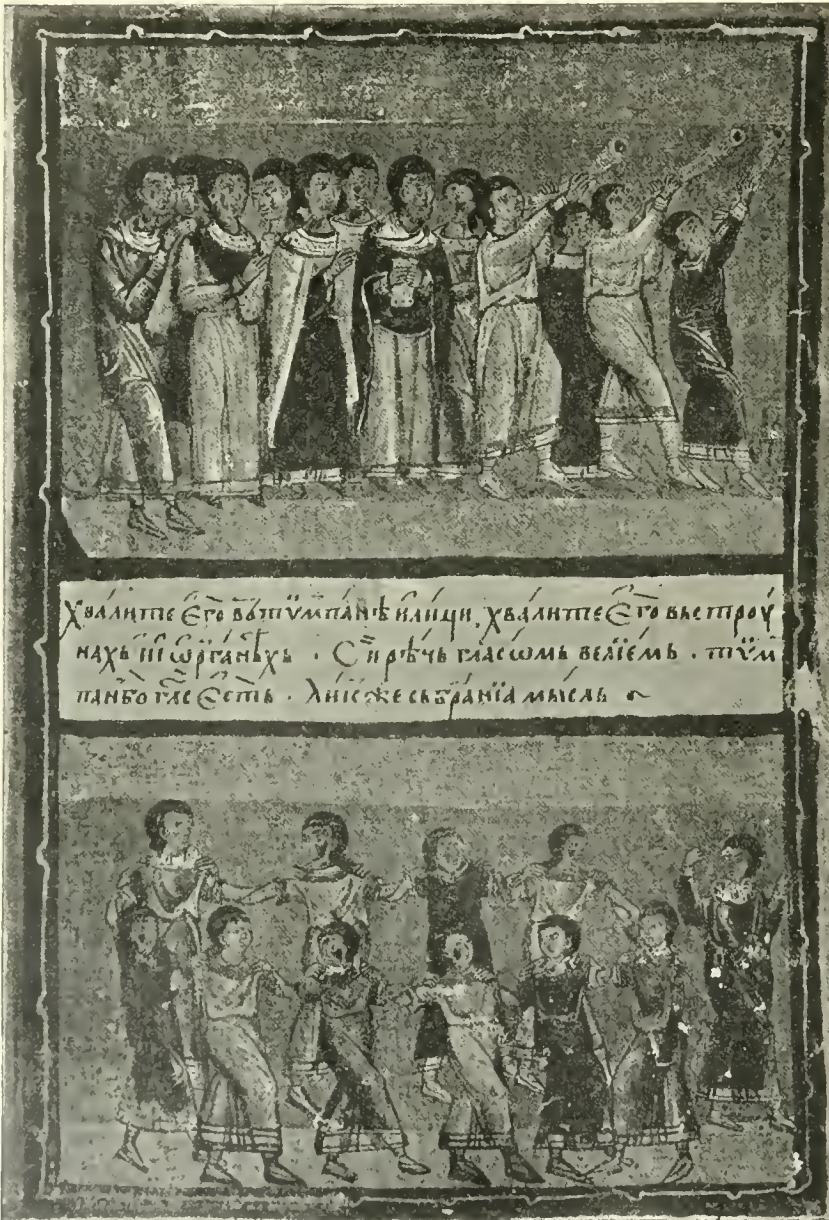 Хвали́те Є҆го̀ въ тѷ́мпанѣ и҆ ли́ци, хвали́те Є҆го̀ въ строу
нахъ и҆ ѡ҆рга́нѣхъ · Сирѣ́чь гла́сѡмь ве́лїемь · тѷм
пан бо гла́с Є҆сть · ли́к же събра́нїа мы́сль ~